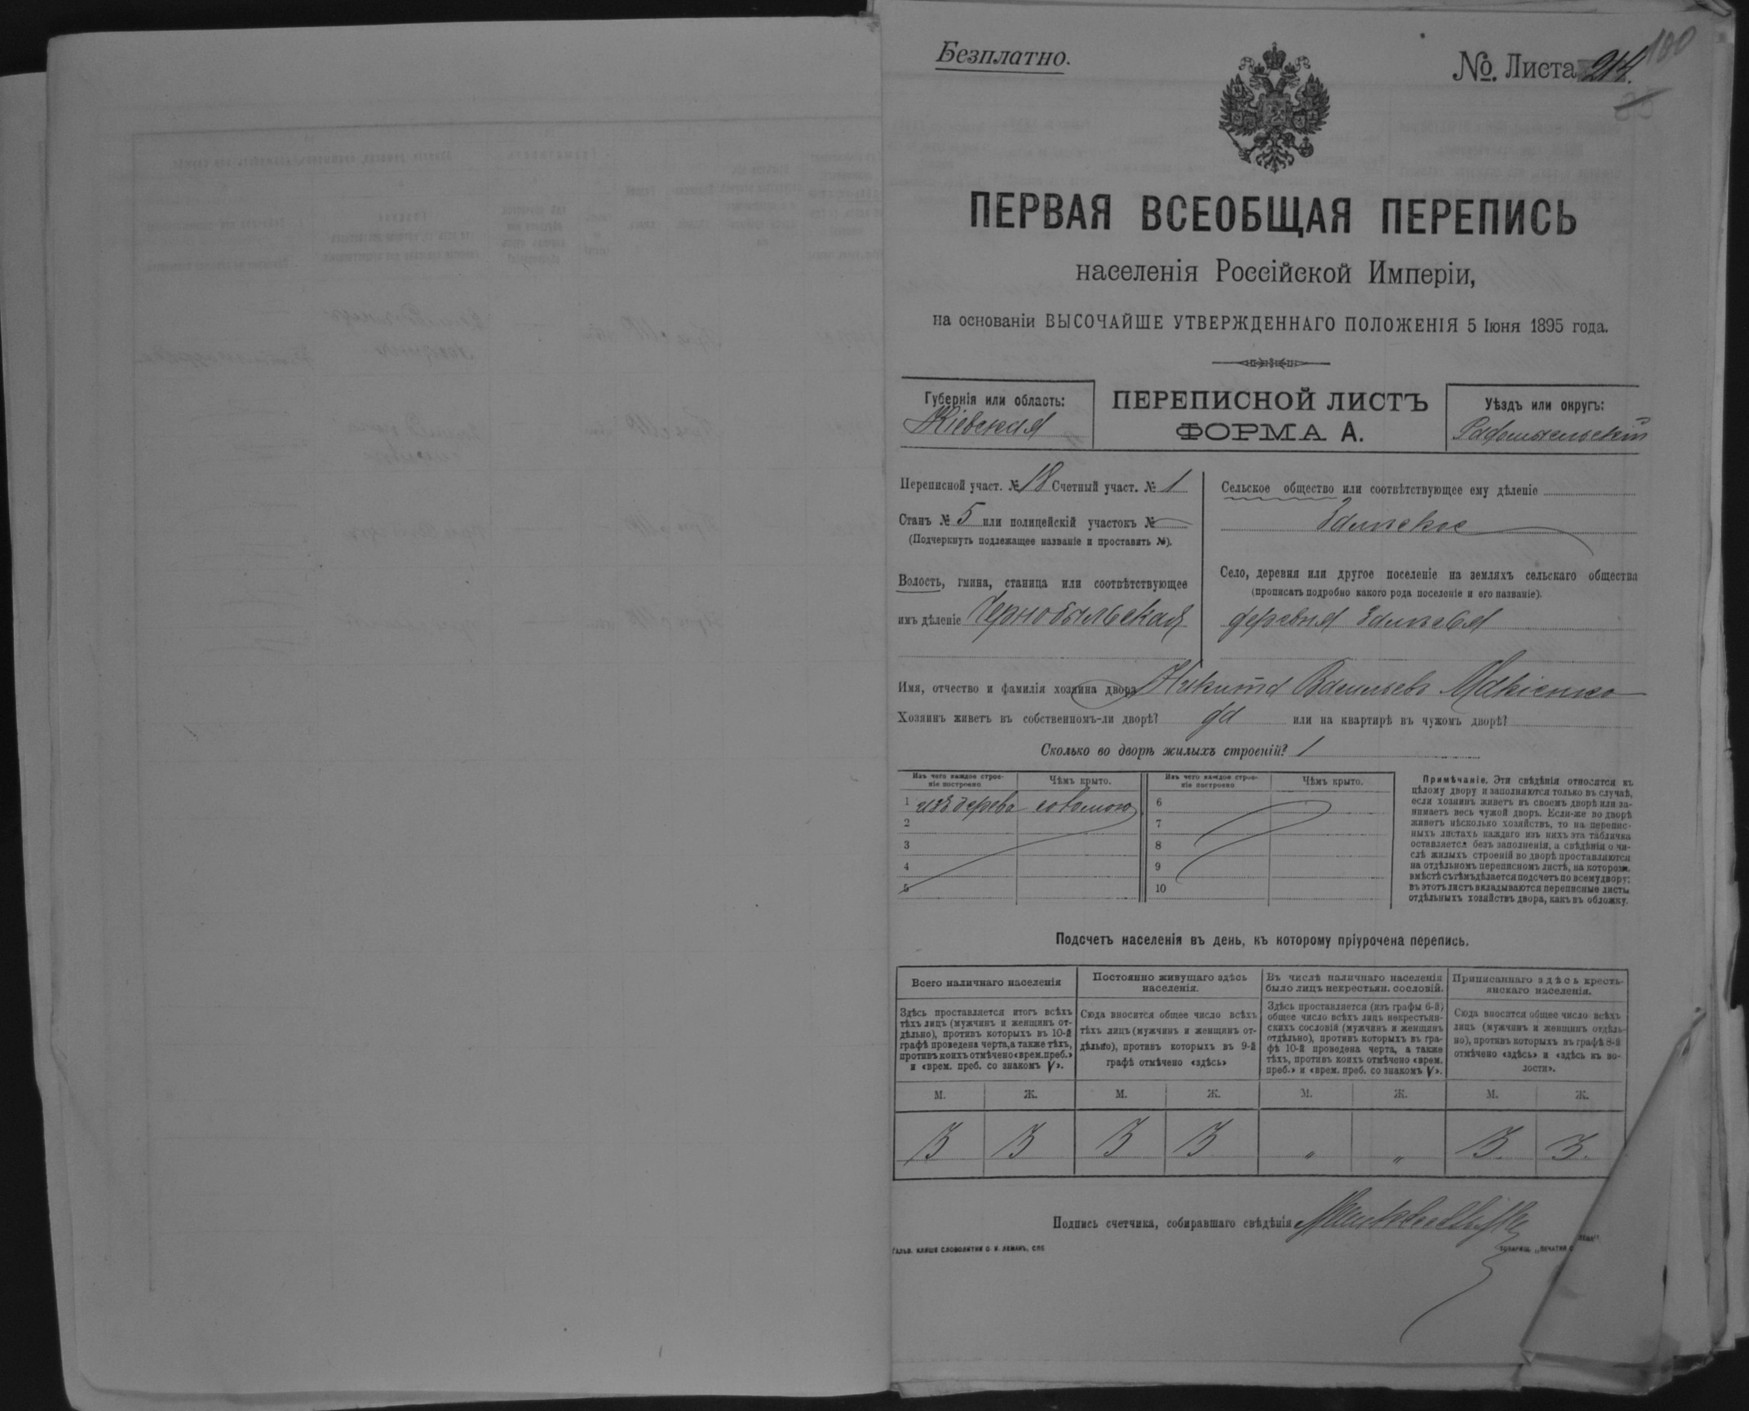 Безплатно.
№. Листа 214.
100
ПЕРВАЯ ВСЕОБЩАЯ ПЕРЕПИСЬ
населенія Россійской Имперіи,
на основаніи ВЫСОЧАЙШЕ УТВЕРЖДЕННАГО ПОЛОЖЕНІЯ 5 Іюня 1895 года.
Губернія или область:
Кіевская
ПЕРЕПИСНОЙ ЛИСТЪ
ФОРМА А.
Уѣздъ или округъ:
Радомысльскій
Переписной участ. № 18 Счетный участ. № 1
Станъ № 5 или полицейскій участокъ №
(Подчеркнуть подлежащее названіе и проставить №).
Волость, гмина, станица или соотвѣтствующее
имъ дѣленіе Чернобыльская
Сельское общество или соотвѣтствующее ему дѣленіе
Село, деревня или другое поселеніе на земляхъ сельскаго общества
(прописать подробно какого рода поселеніе и его названіе).
деревня
Имя, отчество и фамилія хозяина двора Никита Васильевъ Макіенко
Хозяинъ живетъ въ собственномъ-ли дворѣ? да или на квартирѣ въ чужомъ дворѣ?
Сколько во дворѣ жилыхъ строеній? 1
Изъ чего каждое строе-
ніе построено
Чѣмъ крыто.
Изъ чего каждое строе-
ніе построено
Чѣмъ крыто.
1 изъ дерева соломою 6
2 7
3 8
4 9
5 10
Примѣчаніе. Эти свѣдѣнія относятся къ
цѣлому двору и заполняются только въ случаѣ,
если хозяинъ живетъ въ своемъ дворѣ или за-
нимаетъ весь чужой дворъ. Если-же во дворѣ
живетъ нѣсколько хозяйствъ, то на перепис-
ныхъ листахъ каждаго изъ нихъ эта табличка
оставляется безъ заполненія, а свѣдѣнія о чи-
слѣ жилыхъ строеній во дворѣ проставляются
на отдѣльномъ переписномъ листѣ, на которомъ
вмѣстѣ съ тѣмъ дѣлается подсчетъ по всему двору;
въ этотъ листъ вкладываются переписные листы
отдѣльныхъ хозяйствъ двора, какъ въ обложку.
Подсчетъ населенія въ день, къ которому пріурочена перепись.
Всего наличнаго населенія
Здѣсь проставляется итогъ всѣхъ
тѣхъ лицъ (мужчинъ и женщинъ от-
дѣльно), противъ которыхъ въ 10-й
графѣ проведена черта, а также тѣхъ,
противъ коихъ отмѣчено «врем. преб.»
и «врем. преб. со знакомъ V».
Постоянно живущаго здѣсь
населенія.
Сюда вносится общее число всѣхъ
тѣхъ лицъ (мужчинъ и женщинъ от-
дѣльно), противъ которыхъ въ 9-й
графѣ отмѣчено «здѣсь»
Въ числѣ наличнаго населенія
было лицъ некрестьян. сословій.
Здѣсь проставляется (изъ графы 6-й)
общее число всѣхъ лицъ некрестьян-
скихъ сословій (мужчинъ и женщинъ
отдѣльно), противъ которыхъ въ гра-
фѣ 10-й проведена черта, а также
тѣхъ, противъ коихъ отмѣчено «врем.
преб.» и «врем. преб. со знакомъ V».
Приписаннаго здѣсь кресть-
янскаго населенія.
Сюда вносится общее число всѣхъ
лицъ (мужчинъ и женщинъ отдѣль-
но), противъ которыхъ въ графѣ 8-й
отмѣчено «здѣсь» и «здѣсь въ во-
лости».
М. Ж. М. Ж. М. Ж. М. Ж.
3 3 3 3 „ „ 3. 3.
Подпись счетчика, собиравшаго свѣдѣнія
Гальв. клише словолитни О. И. Леманъ, СПБ